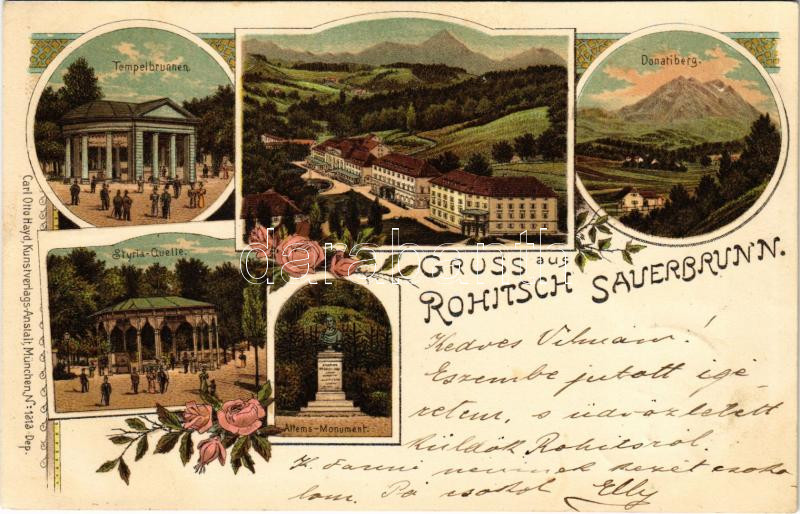 Tempelbrunnen.
Donatiberg.
Styria-Quelle.
Attems-Monument.
GRUSS aus
ROHITSCH SAUERBRUNN.
Carl Otto Hayd, Kunstverlags-Anstalt, München. No: 1213 Dep.
darabanth
Kedves Vilmám!
Eszembe jutott igé
retem, s üdvözletett
küldök Rohitsról.
Fanni néninek kezét csoko
lom. Pá csókol Elly